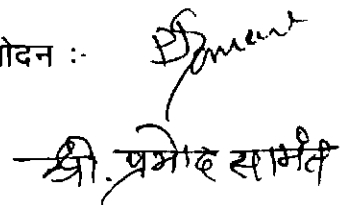 ोदन :-
श्री. प्रमोद सामंत